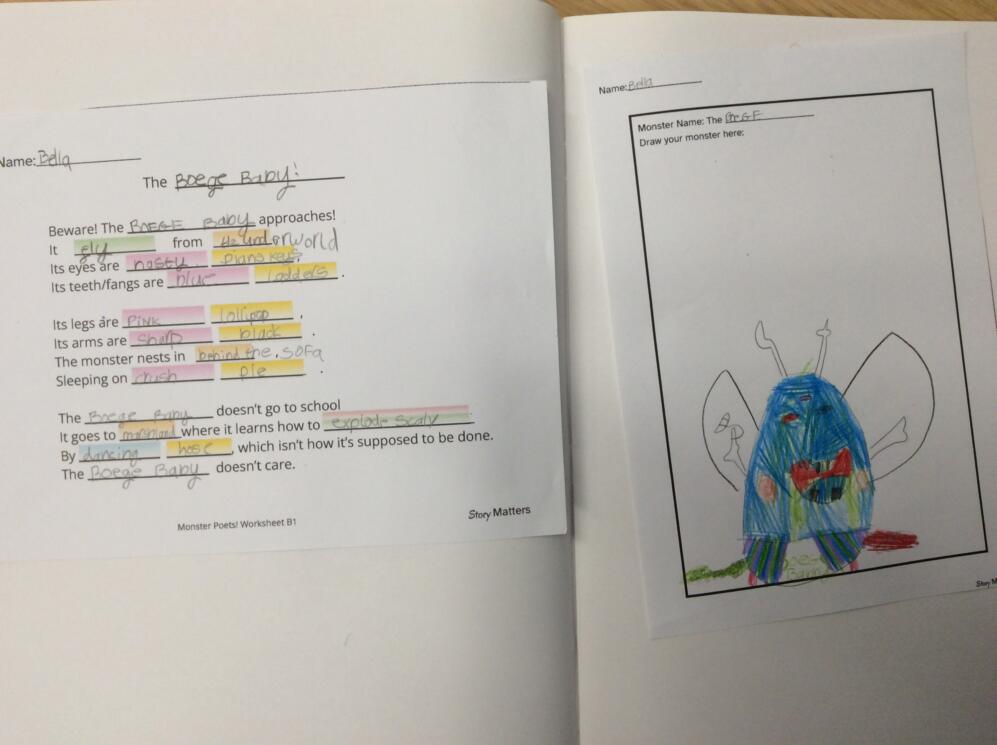 Name: Bella
The Boege Baby!
Beware! The BOEGE Baby approaches!
It gly from the underworld
Its eyes are nosty piano keys,
Its teeth/fangs are blue ladders.
Its legs are Pink lollipop,
Its arms are sharp black.
The monster nests in behind the sofa
Sleeping on crush pie.
The Boege Baby doesn't go to school
It goes to where it learns how to explode scaly.
By dancing hose, which isn't how it's supposed to be done.
The Boege Baby doesn't care.
Monster Poets! Worksheet B1
Story Matters
Name: Bella
Monster Name: The BOEGE
Draw your monster here:
Story M